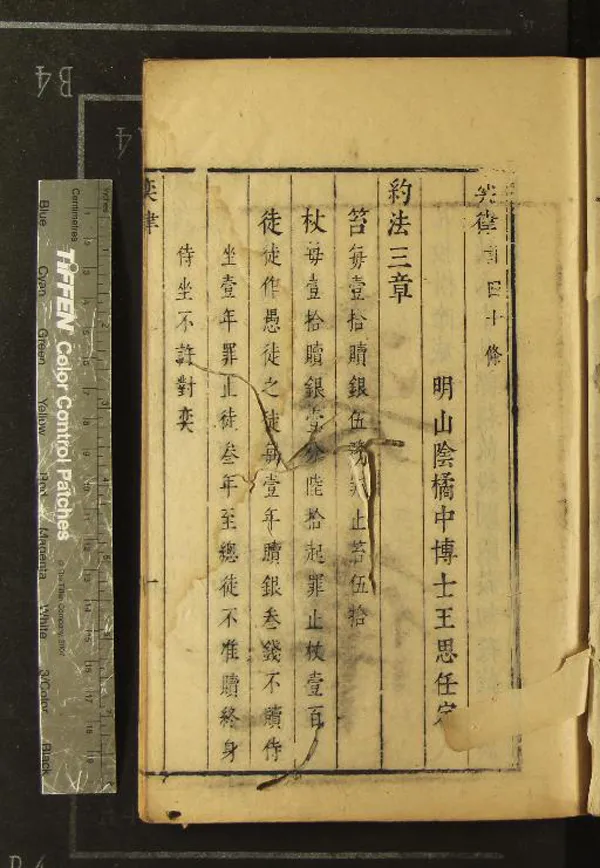 奕律 四十條
明山陰橘中博士王思任定
約法三章
笞每壹拾贖銀伍 罪止笞伍拾
杖每壹拾贖銀壹 陸拾起罪止杖壹百
徒徒作愚徒之徒每壹年贖銀叁錢不贖侍
坐壹年罪止徒叁年至總徒不准贖終身
侍坐不許對奕
奕律
一
B4
Inches
Centimetres
TIFFEN Color Control Patches
© The Tiffen Company, 2007
Blue
Cyan
Green
Yellow
Red
Magenta
White
3/Color
Black